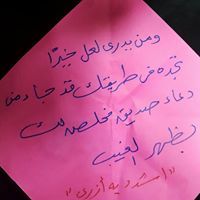 ومن يدرى لعل خيرًا
تجده فى طريقك قد جاء من
دعاء صديقه مخلصه لك
بظهر الغيب
"اشدد به أزرى"